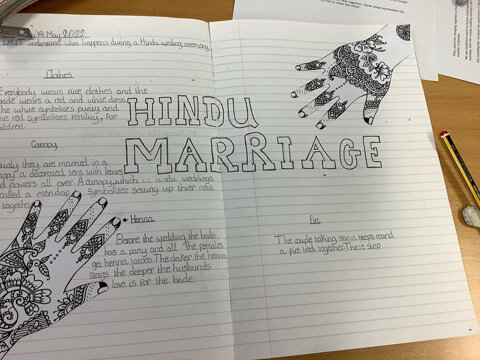 19 May 2022
understand what happens during a Hindu wedding ceremony
Clothes
Everybody wears nice clothes and the
bride wears a red and white dress
The white symbolises purity and
the red symbolises fertility, for
children.
HINDU
MARRIAGE
Canopy
they are married in a
canopy a decorated tent with leaves
and flowers all over. A canopy, which at hindu weddings
called a mendap symbolizes setting up their
together
Henna
Before the wedding the bride
has a party and all the females
get henna tatoos. The darker the henna
stays the deeper the husbands
love is for the bride.
Fire
The couple taking seven steps round
a fire tied together. These step